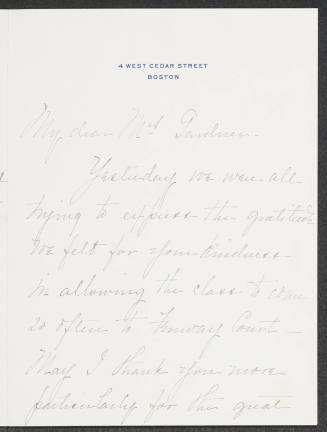 4 WEST CEDAR STREET
BOSTON
My dear Mrs Gardner -
Yesterday we were all
trying to express the gratitude
we felt for your kindness
in allowing the class to come
so often to Fenway Court -
May I thank you more
particularly for the great